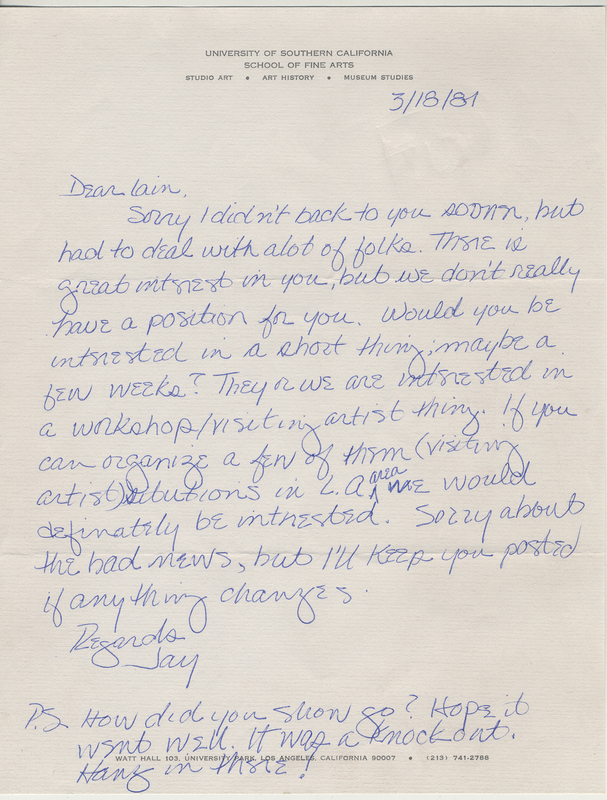 UNIVERSITY OF SOUTHERN CALIFORNIA
SCHOOL OF FINE ARTS
STUDIO ART • ART HISTORY • MUSEUM STUDIES
3/18/81
Dear Iain,
Sorry I didn't back to you sooner, but
had to deal with alot of folks. There is
great interest in you, but we don't really
have a position for you. Would you be
intrested in a short thing, maybe a
few weeks? They or we are intrested in
a workshop/visiting artist thing. If you
can organize a few of them (visiting
artist) situtions in L.A. area we would
definately be intrested. Sorry about
the bad news, but I'll keep you posted
if anything changes.
Regards
Jay
P.S. How did you show go? Hope it
went well. It was a knock out.
Hang in there!
WATT HALL 103, UNIVERSITY PARK, LOS ANGELES, CALIFORNIA 90007 • (213) 741-2788